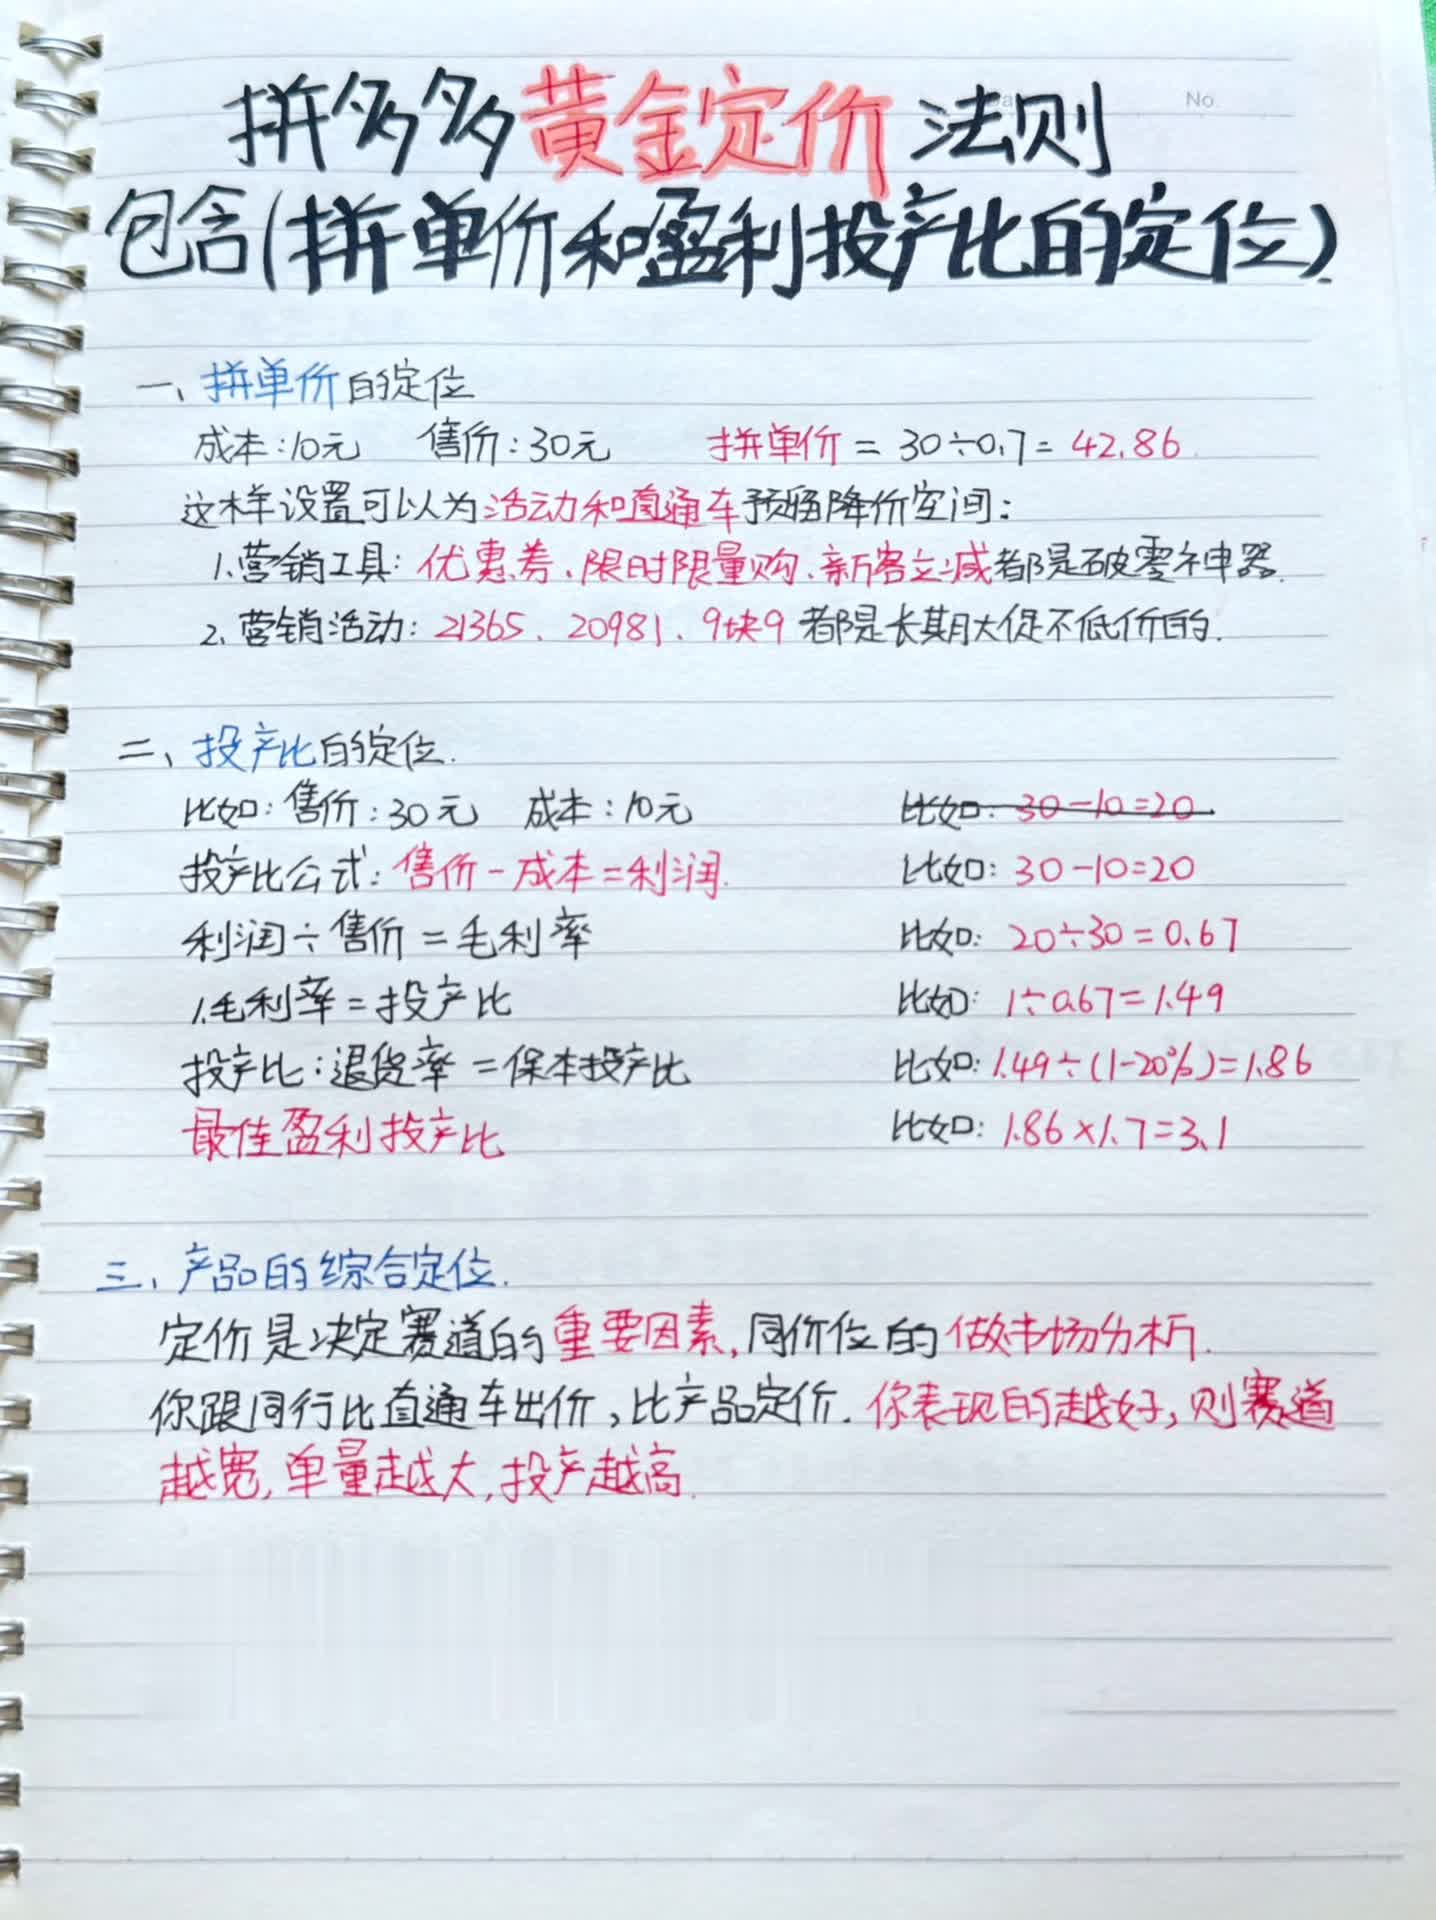 No.
拼多多黄金定价法则
包含(拼单价和盈利投产比的定位)
一、拼单价的定位
成本:10元 售价:30元 拼单价=30÷0.7=42.86
这样设置可以为活动和直通车预留降价空间:
1.营销工具:优惠券、限时限量购、新客立减都是破零神器.
2.营销活动:21365、20981、9块9都是长期大促不低价的.
二、投产比的定位.
比如:售价:30元 成本:10元 比如:30-10=20
投产比公式:售价-成本=利润. 比如:30-10=20
利润÷售价=毛利率 比如:20÷30=0.67
1.毛利率=投产比 比如:1÷0.67=1.49
投产比:退货率=保本投产比 比如:1.49÷(1-20%)=1.86
最佳盈利投产比 比如:1.86×1.7=3.1
三、产品的综合定位.
定价是决定赛道的重要因素,同价位的做市场分析.
你跟同行比直通车出价,比产品定价.你表现的越好,则赛道
越宽,单量越大,投产越高.